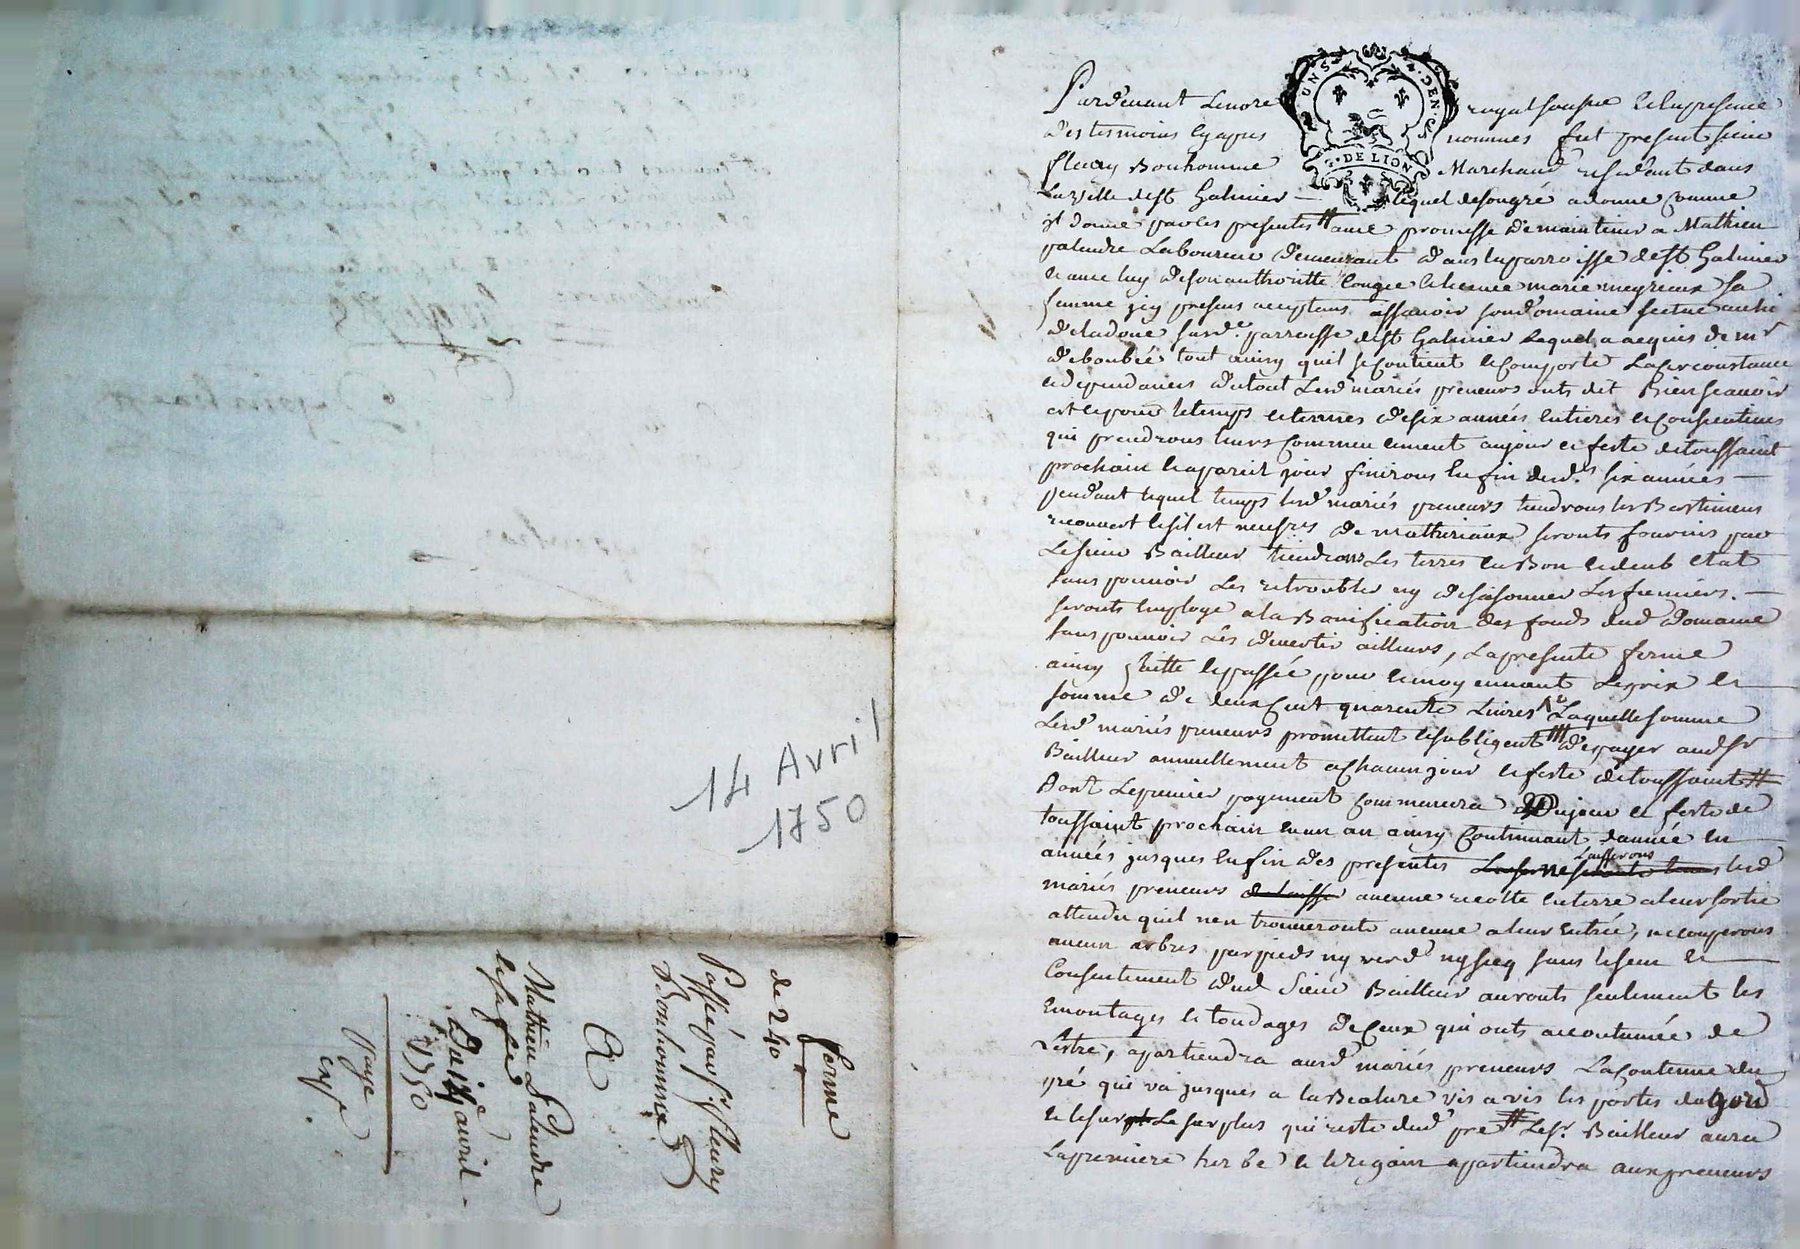 14 Avril
1750
ferme
de 240 #
Passé par Sr fleury
Bonhomme
A
Mathieu Palendre
et sa fe
Du 14e avril
1750
paye
UNS DEN
G. DE LION
Pardevant Le nore royal soussne et en presence
des tesmoins cy apres nommes fut present sieur
fleury Bonhomme Marchand residant dans
La ville de st Galmier — lequel de son gré a donne comme
il donne par les presentes # avec promesse de maintenir a Mathieu
palendre Laboureur demeurant dans la parroisse de st Galmier
et avec luy de son authoritté Conge et licence marie meyrieux sa
femme icy presens acceptans assavoir son domaine scitue au lieu
de ladoue susde parroisse de st Galmier Lequel a acquis de mr
de boubée tout ainsy quil se Contient et Comporte La circonstance
et dependances du tout Lesd mariés preneurs onts dit Bien scavoir
est ce pour le temps et termes de six années entieres et Consecutives
qui prendrons leurs Commencement au jour et feste de toussaint
prochain et a pareil jour finirons en fin desds six années —
pendant lequel temps lesd mariés preneurs tiendrons les Bastiments
recouvert et sil est necessre de mattériaux seronts fournis par
Le sieur Bailleur tiendrons Les terres en Bon et deub etat
sans pouvoir Les retroubler ny desaisonner Les fumiers. —
seronts employe a la Bonification des fonds dud domaine
sans pouvoir Les divertir ailleurs, La presente ferme
ainsy faitte et passée pour et moyennant Le prix et
somme de deux Cent quarente Livres Laquelle somme
Lesd mariés preneurs promettent et sobligent # de payer aud sr
Bailleur annuellement a Chacun jour et feste de toussaint #
Dont Le premier payement Commencera Du jour et feste de
toussaint prochain en un an ainsy Continuant dannée en
années jusques en fin des presentes ne Laisserons lesd
mariés preneurs aucune recolte en terre a leur sortie
attendu quil nen trouveronts aucune a leur entrée, ne couperons
aucun arbres par pieds ny verd ny secq sans le sceu et
Consentement dud Sieur Bailleur auronts seulement les
emontages et tondages de Ceux qui onts accoutumée de
Lestre, apartiendra ausd mariés preneurs La Contenue du
pré qui va jusques a la Bealure vis a vis les portes du
et le surplus qui reste dud pre # Le sr Bailleur aura
La premiere herbe et le regain apartiendra aux preneurs